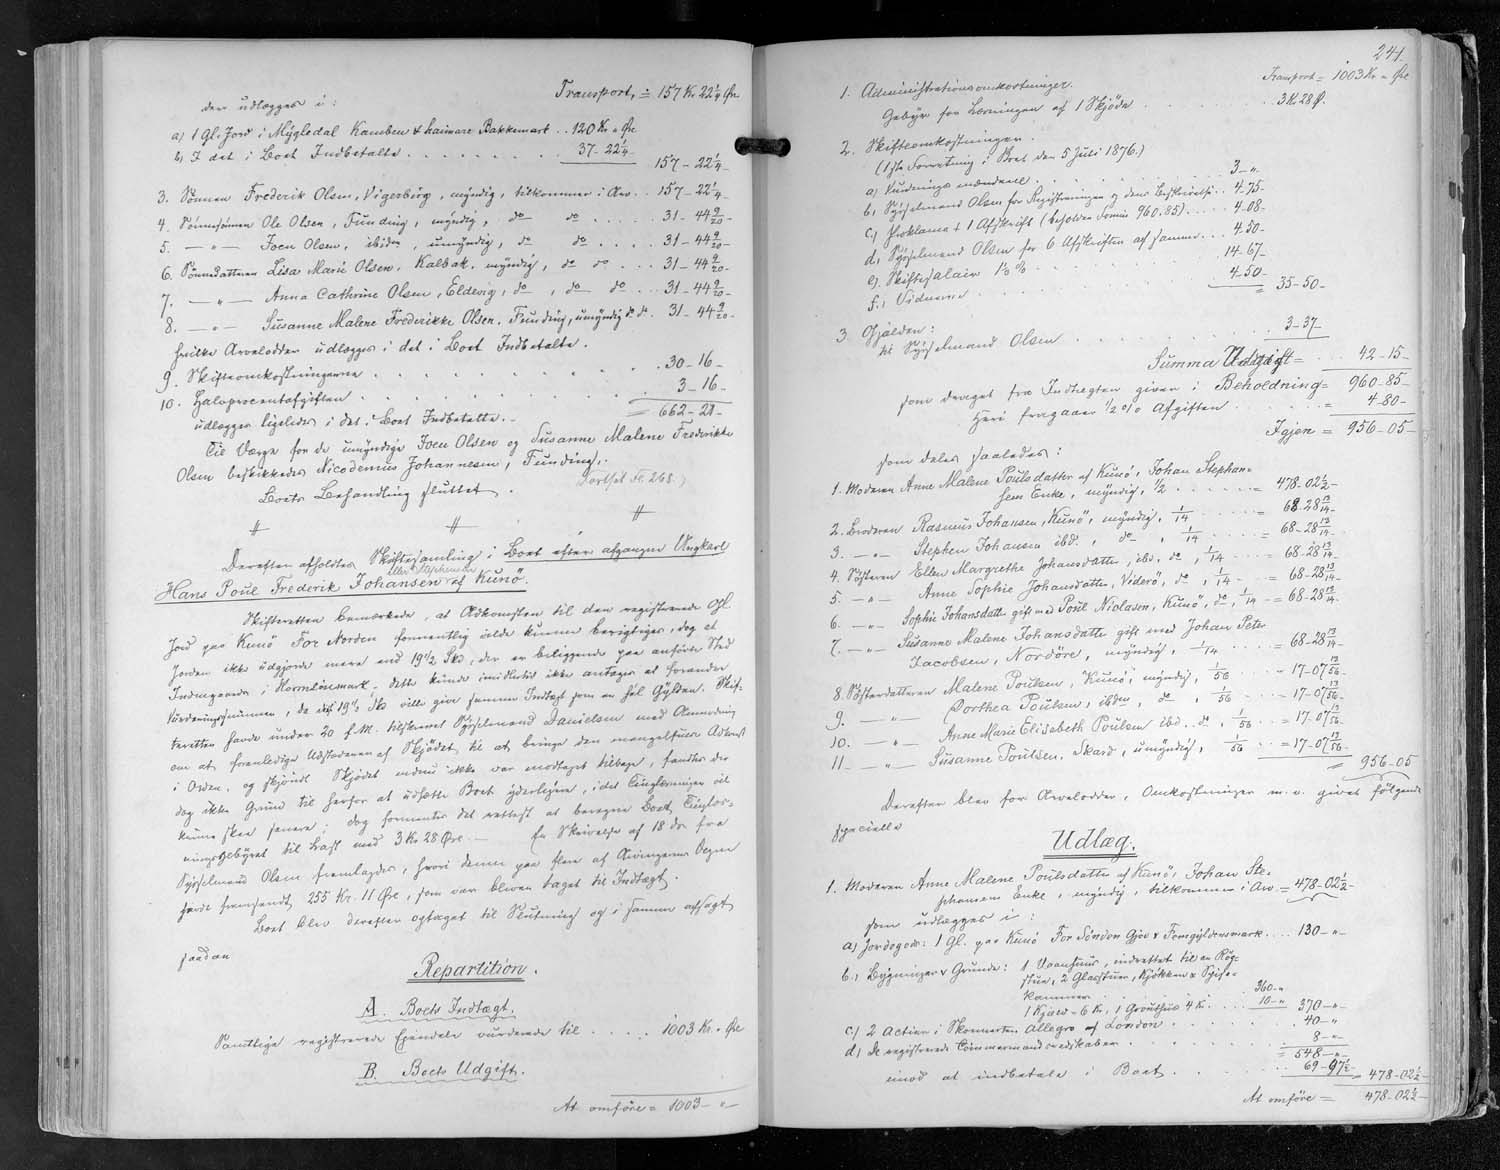 Transport, = 157 Kr. 22 1/4 Øre
der udlægges i:
a) 1 Gl. Jord i Mýgledal Kamben & haimare Bakkemark .. 120 Kr. " Øre
b) I det i Boet Indbetalte . . . . . . . 37 - 22 1/4 -
157 - 22 1/4 -
3. Sønnen Frederik Olsen, Vigerbirg, mÿndig, tilkommer i Arv .. 157 - 22 1/4 -
4. Sønnesønnen Ole Olsen, Funding, mÿndig, do do . . . . . 31 - 44 9/20 -
5. — " — Joen Olsen, ibidem, umÿndig, do do . . . . 31 - 44 9/20 -
6. Sønnedatteren Lisa Marie Olsen, Kalbak, mÿndig, do do . . . 31 - 44 9/20 -
7. — " — Anna Cathrine Olsen, Eldevig, do, do do . . . 31 - 44 9/20 -
8. — " — Susanne Malene Frederikke Olsen, Funding, umÿndig do do. 31 - 44 9/20 -
hvilke Arvelodder udlægges i det i Boet Indbetalte.
9. Skifteomkostningerne . . . . . . . . . . 30 - 16 -
10. Halvprocentafgiften . . . . . . . . . . 3 - 16 -
udlægges ligeledes i det i Boet Indbetalte. = 662 - 21 -
Til Værge for de umÿndige Joen Olsen og Susanne Malene Frederikke
Olsen beskikkedes Nicodemus Johannesen, Funding.
Boets Behandling sluttet. (Fortsat Fl. 268.)
# # #
Derefter afholdtes Skiftesamling i Boet efter afgangne Ungkarl
eller Stephensen
Hans Poul Frederik Johansen af Kunö.
Skifteretten bemærkede, at Adkomsten til den registrerede Gl.
Jord paa Kunö For Norden formentlig vilde kunne berigtiges, dog at
Jorden ikke udgjorde mere end 19 1/2 Sk., der er beliggende paa anförte Sted
Indmgaarde i Hornlinsmark, dette kunde imidlertid ikke antages at forandre
Vurderingssummen, da de 19 1/2 Sk ville give samme Indtægt som en hel Gÿlden. Skif-
teretten havde under 20 f. M. tilskrevet Sÿsselmand Danielsen med Anmodning
om at foranledige Udstederen af Skjødet til at bringe den mangelfulde Adkomst
i Orden, og skjöndt Skjödet endnu ikke var modtaget tilbage, fandtes der
dog ikke Grund til herfor at udsætte Boet yderligere, idet Tinglæsningen vil
kunne skee senere; dog formentes det rettest at beregne Boet, Tinglæs-
ningsgebyret til Last med 3 Kr 28 Øre. — En Skrivelse af 18 ds. fra
Sÿsselmand Olsen fremlagdes, hvori denne paa flere af Arvingernes Vegne
havde fremsendt 255 Kr. 11 Øre, som var bleven taget til Indtægt.
Boet blev derefter optaget til Slutning og i samme afsagt
saadan
Repartition.
A. Boets Indtægt.
Samtlige registrerede Ejendele vurderede til . . . . . 1003 Kr. " Øre
B. Boets Udgift.
At omföre = 1003 - " -
241.
Transport = 1003 Kr. " Øre
1. Administrationsomkostninger.
Gebyr for Læsningen af 1 Skjöde . . . . . . . . 3 Kr 28 Ø.
2. Skifteomkostninger.
(1ste Forretning i Boet den 5 Juli 1876.)
a) Vurderingsmændene . . . . . . . . . 3 - " -
b) Sÿsselmand Olsen for Registreringen og dens Beskrivelse .. 4 - 75 -
c) Proklama + 1 Afskrift (beholden Formue 960.85) . . . . 4 - 08 -
d) Sÿsselmand Olsen for 6 Afskrifter af samme . . . 4 - 50 -
e) Skiftesalair 1 1/2 % . . . . . . . . . 14 - 67 -
f) Vidnerne . . . . . . . . . . . 4 - 50 -
= 35 - 50 -
3 Gjælden:
til Sÿsselmand Olsen . . . . . . . . . . 3 - 37 -
Summa Udgift = . . . 42 - 15 -
som draget fra Indtægten giver i Beholdning = 960 - 85 -
Heri fragaaer 1/2 % Afgiften . . . . . = 4 - 80 -
Igjen = 956 - 05 -
som deles saaledes:
1. Moderen Anne Malene Poulsdatter af Kunö, Johan Stephan-
sens Enke, mÿndig, 1/2 . . . . . = 478 - 02 1/2 -
2. Broderen Rasmus Johansen, Kunö, mÿndig, 1/14 . . . . . = 68 - 28 13/14 -
3. — " — Stephen Johansen ibd., do, 1/14 . . . . = 68 - 28 13/14 -
4. Søsteren Ellen Margrethe Johansdatter, ibd, do, 1/14 - . . = 68 - 28 13/14 -
5. — " — Anne Sophie Johansdatter, Viderö, do, 1/14 - . . = 68 - 28 13/14 -
6. — " — Sophie Johansdatter gift med Poul Niclasen, Kunö, do, 1/14 - = 68 - 28 13/14 -
7. — " — Susanne Malene Johansdatter gift med Johan Peter
Jacobsen, Nordöre, mÿndig, 1/14 - . . . . = 68 - 28 13/14 -
8. Søsterdatteren Malene Poulsen, Kunö, mÿndig, 1/56 . . . = 17 - 07 13/56 -
9. — " — Dorthea Poulsen, ibdm, do, 1/56 . . . = 17 - 07 13/56 -
10. — " — Anne Marie Elisabeth Poulsen ibd., do, 1/56 . . = 17 - 07 13/56 -
11. — " — Susanne Poulsen, Skard, umÿndig, 1/56 . . = 17 - 07 13/56 -
= 956 - 05
Derefter blev for Arvelodder, Omkostninger m. v. givet følgende
specielle
Udlæg.
1. Moderen Anne Malene Poulsdatter af Kunö, Johan Ste-
phansens Enke, mÿndig, tilkommer i Arv = 478 - 02 1/2 -
som udlægges i:
a) Jordegods: 1 Gl. paa Kunö For Sönden Gjov & Forngÿldensmark . . . . 130 - " -
b) Bygninger & Grunde: 1 Vaanhuus, indrettet til en Røg-
stue, 2 Glasstuer, Kjökken & Spise-
kammer . . . . . . . . 360 - "
1 Kjald = 6 Kr., 1 Grouthus 4 Kr. . . . 10 - " 370 - " -
c) 2 Actier i Skonnerten Allegro af London . . . . . . 40 - "
d) De registrerede Tömmermandsredskaber . . . . . . . . 8 - " -
= 548 - " -
imod at indbetale i Boet . . . . . . 69 - 97 1/2 - = 478 - 02 1/2 -
At omföre = 478 - 02 1/2 -